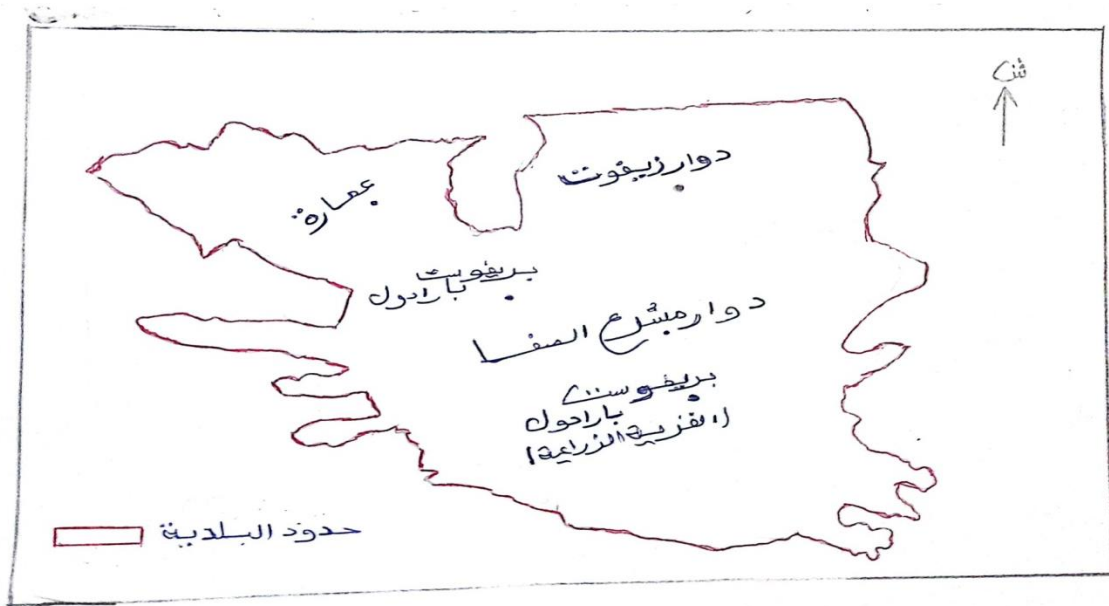 ش
دوار زيفوت
عمارة
بريفوست
بارادول
دوار مشرع الصفا
بريفوست
بارادول
(القرية الزراعية)
حدود البلدية